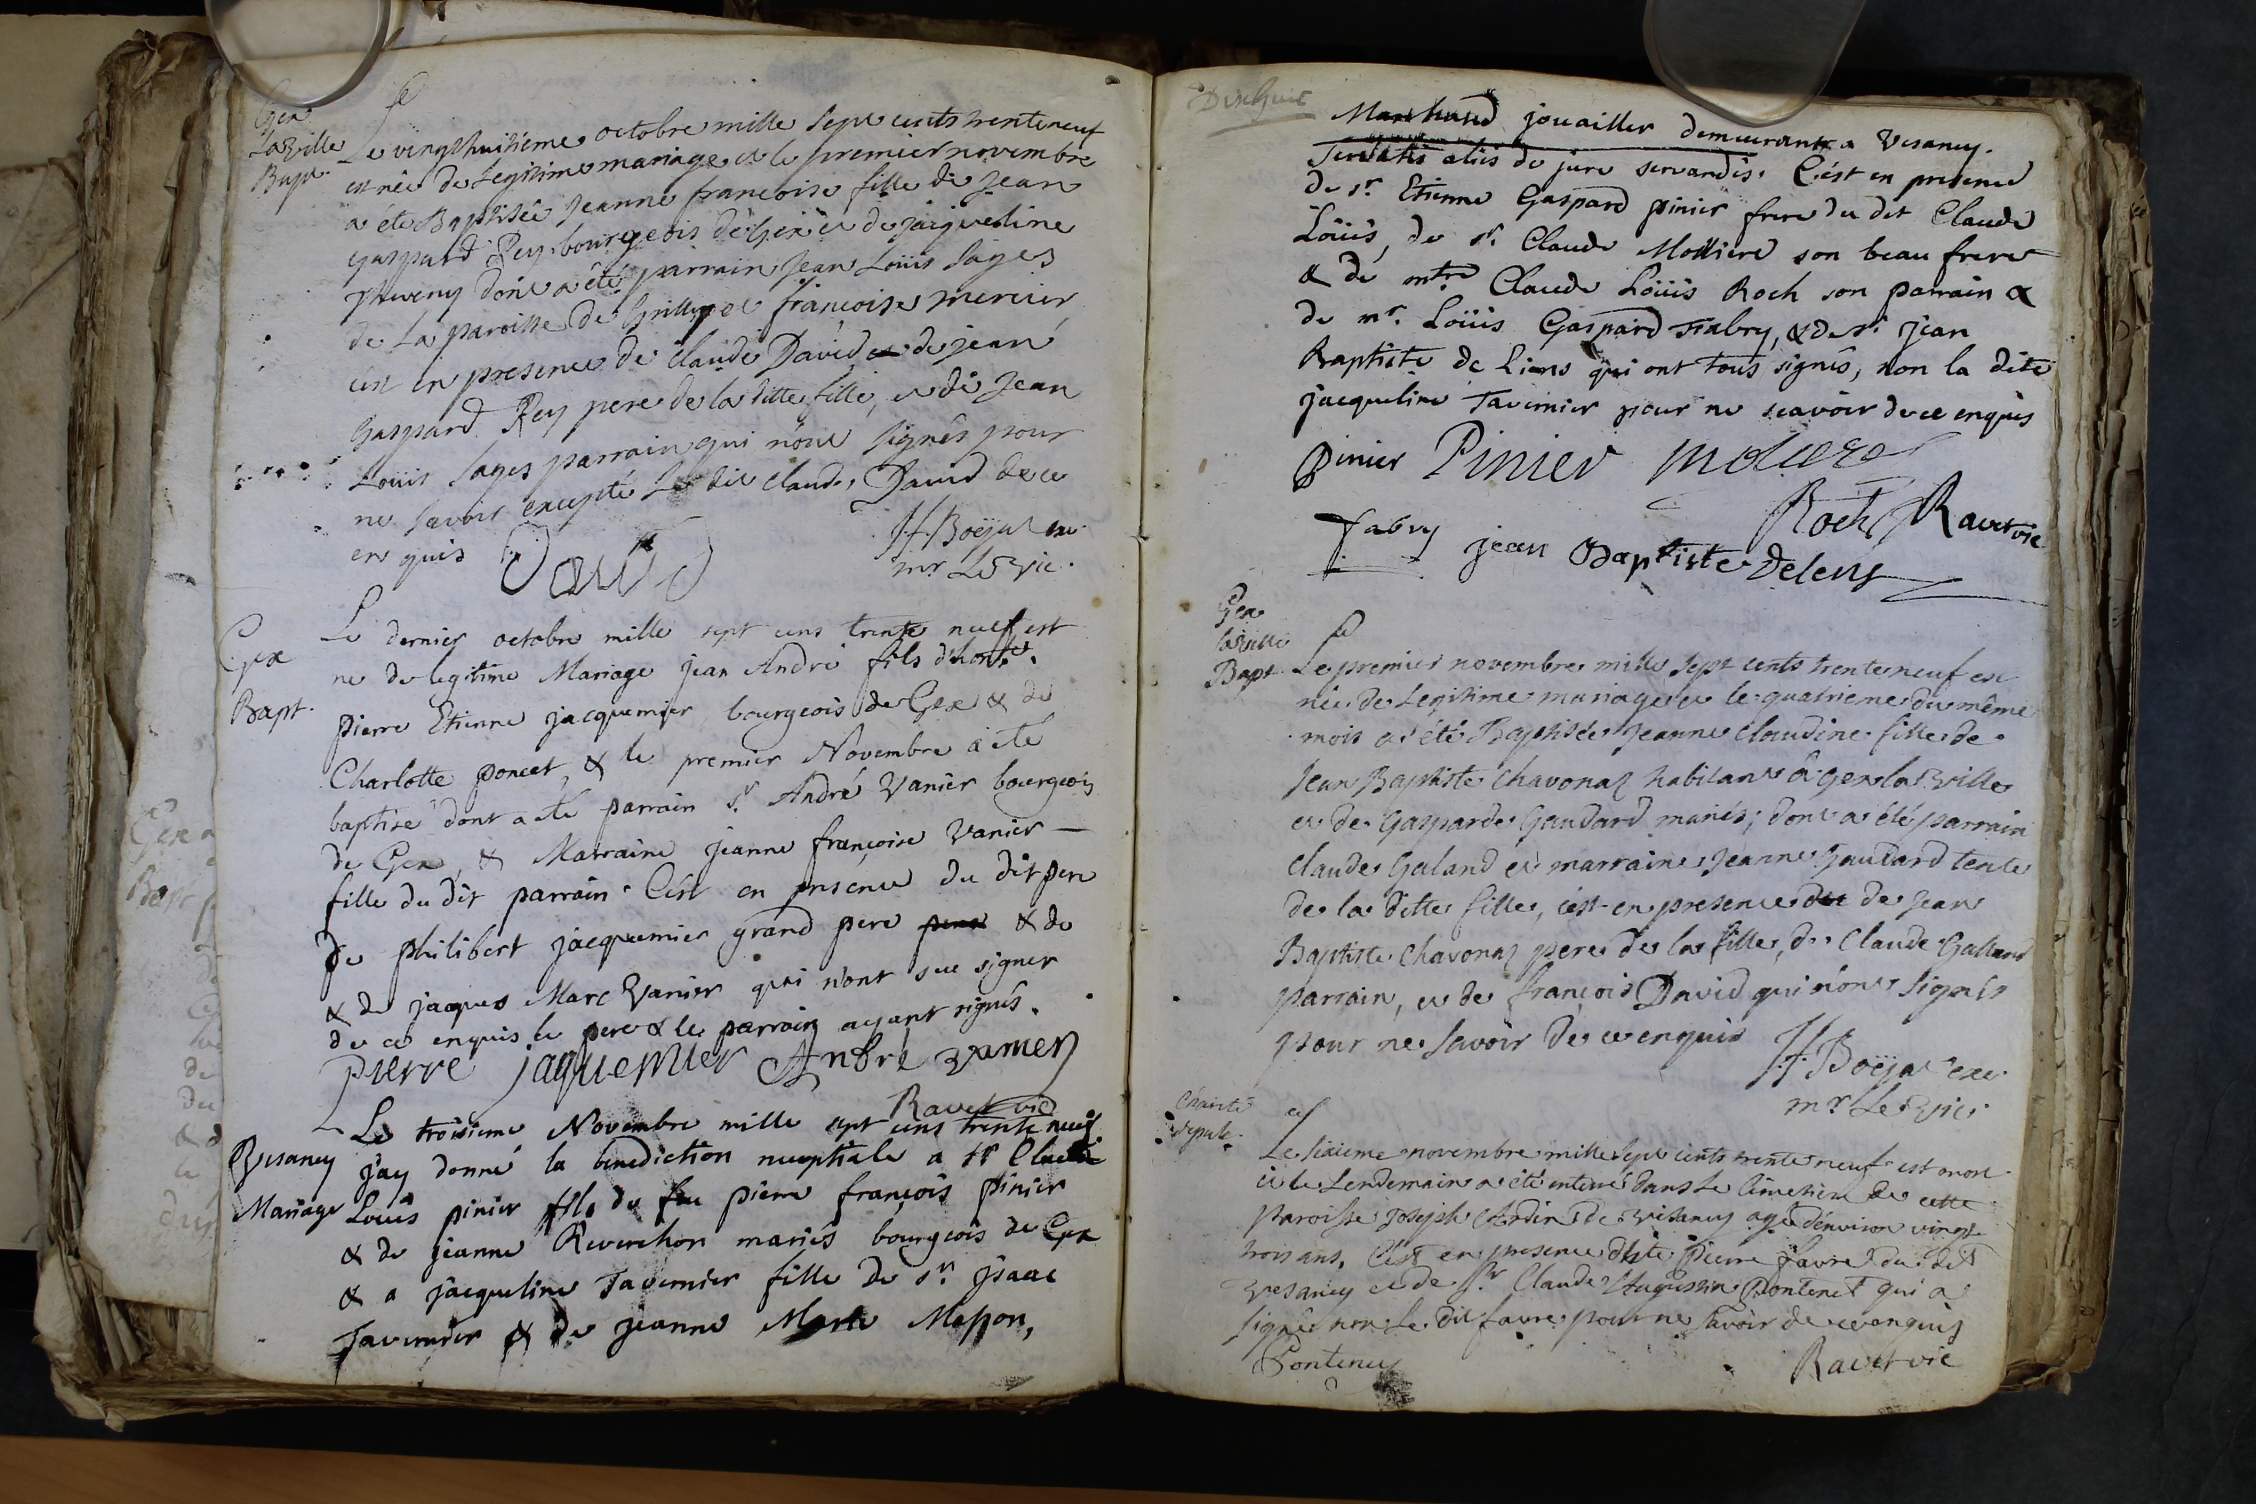 Gex
La Ville
Bapt.
Le vingt huitieme octobre mille sept cents trente neuf
est née de Legitime mariage et le premier novembre
a été Baptisée Jeanne francoise fille de Jean
gaspard Rey bourgeois de Gex et de jaqueline
dont a été parrain Jean Loüis Sages
de La paroisse de Grilly et francoise mercier
c'est en presence de Claude David de jean
Gaspard Rey pere de la ditte fille, et de Jean
Loüis Sages parrain qui n'ont signés pour
ne savoir excepté Le dit Claude David de ce
enquis David
mr Le vic.
Gex
Bapt.
Le dernier octobre mille sept cens trente neuf est
né de legitime Mariage jean André fils d'honte.
pierre Etienne jacquemier bourgeois de Gex & de
Charlotte poncet, & le premier Novembre a ete
baptisé dont a ete parrain sr. André Vanier bourgeois
de Gex, & Marraine jeanne françoise Vanier
fille du dit parrain. C'est en presence du dit pere
de philibert jacquemier grand pere pere & de
& de jaques Marc Vanier qui n'ont sue signer
de ce enquis le pere & le parrain ayant signés.
pierre jaquemier Andre vanier
Ravet vic
Vesancy
Mariage
Le troisieme Novembre mille sept cens trente neuf
j'ay donné la benediction nuptiale a sr Claude
Louis pinier fils de feu pierre françois pinier
& de jeanne Reverchon mariés bourgeois de Gex
& a jacqueline Tavernier fille de sr. jsaac
Tavernier & de jeanne Marte Masson,
Marchand jouaillier demeurants a Vesancy.
servatis aliis de jure servandis. C'est en presence
de sr. Etienne Gaspard pinier frere du dit Claude
Loüis, de sr. Claude Molliere son beau frere
& de mtre Claude Loüis Roch son parrain &
de mr. Loüis Gaspard Fabry, & de sr. jean
Baptiste de Liens qui ont tous signés, non la dite
jacqueline Tavernier pour ne scavoir de ce enquis
Pinier Pinier moliere
Roch Ravet vic
fabry jean Baptiste Delens
Gex
la ville
Bapt.
Le premier novembre mille sept cents trente neuf est
née de Legitime mariage et le quatrieme du même
mois a été Baptisée Jeanne Claudine fille de
Jean Baptiste Chavonaz habitant à Gex la ville
et de Gasparde Gaudard mariés; dont a été parrain
Claude Galand et marraine Jeanne Gaudard tente
de la ditte fille, c'est en presence de Jean
Baptiste Chavonaz pere de la fille, de Claude Galland
parrain, et de françois David qui n'ont signés
pour ne savoir de ce enquis
mr Le Vic.
sepult.
Le sixieme novembre mille sept cents trente neuf est mort
et le Lendemain a été enterré dans Le Cimetiere de cette
paroisse Joseph de Vesancy agé d'environ vingt
trois ans. C'est en presence d'hte pierre favre du dit
vesancy et de Sr. Claude Augustin Pontenet qui a
signé non Le dit favre pour ne savoir de ce enquis
Ravet vic